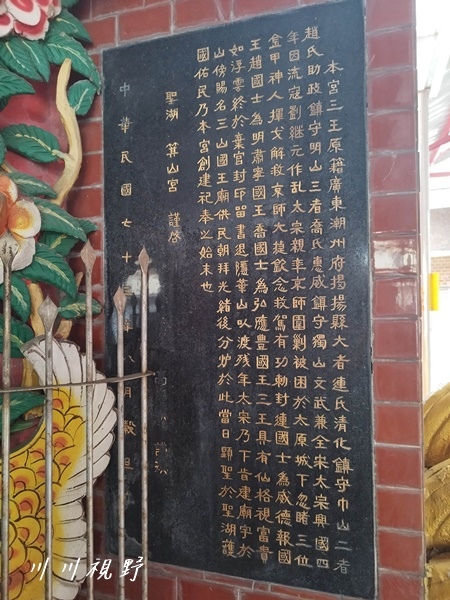 本宮三王原籍廣東潮州府揭揚縣大者連氏清化鎮守巾山二者
趙氏助政鎮守明山三者喬氏惠威鎮守獨山文武兼全宋太宗興國四
年因流寇劉繼元作乱太宗親率京師圍剿被困於太原城下忽睹三位
金甲神人揮戈解救京師大捷欽念救駕有功勅封連國士為威德報國
王趙國士為明肅寧國王喬國士為弘應豊國王三王具有仙格視富貴
如浮雲終於棄官封印留書退隱
山以渡残年太宗乃下旨建廟宇於
山傍賜名三山國王廟供民朝拜光緒後分炉於此當日顕聖於聖湖護
國佑民乃本宮創建祀奉之始末也
聖湖 箕山宮 謹啓
中華民國七十
年八月
旦
川川視野